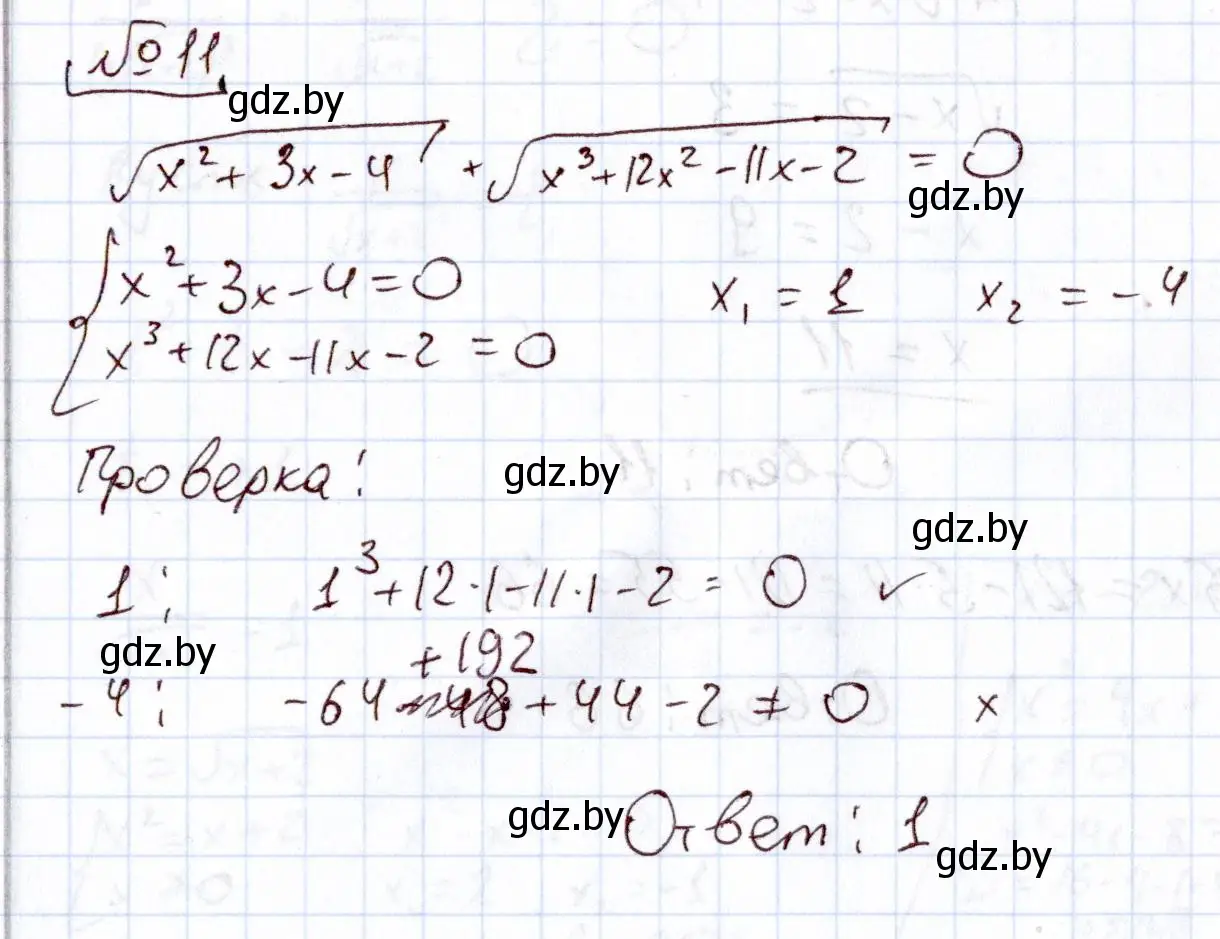 № 11
gdz.by
√(x² + 3x - 4) + √(x³ + 12x² - 11x - 2) = 0
gdz.by
{ x² + 3x - 4 = 0
x₁ = 1 x₂ = -4
x³ + 12x - 11x - 2 = 0
Проверка!
gdz.by
gdz.by
1; 1³ + 12·1 - 11·1 - 2 = 0 ✓
gdz.by
+192
-4; -64 + 44 - 2 ≠ 0 x
gdz.by
Ответ: 1
gdz.by